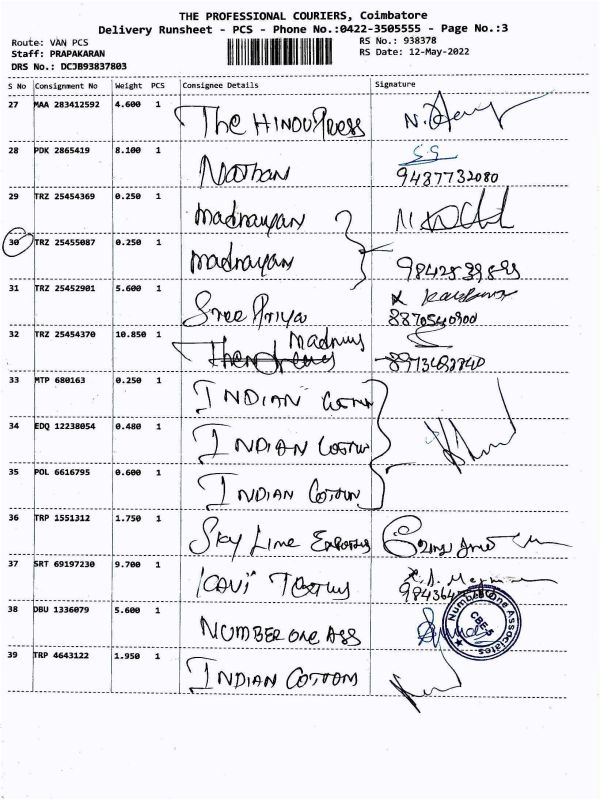 THE PROFESSIONAL COURIERS, Coimbatore
Delivery Runsheet - PCS - Phone No.:0422-3505555 - Page No.:3
Route: VAN PCS
RS No.: 938378
Staff: PRAPAKARAN
RS Date: 12-May-2022
DRS No.: DCJB93837803
S No Consignment No Weight PCS Consignee Details Signature
27 MAA 283412592 4.600 1 The HINDU Press
28 PDK 2865419 8.100 1 Nathan
9487732080
29 TRZ 25454369 0.250 1 madnayan
30 TRZ 25455087 0.250 1 madnayan
31 TRZ 25452901 5.600 1 Sree Priya
8870540900
32 TRZ 25454370 10.850 1
33 MTP 680163 0.250 1 INDIAN
34 EDQ 12238054 0.480 1 INDIAN
35 POL 6616795 0.600 1 INDIAN Cotton
36 TRP 1551312 1.750 1 Sky Line
37 SRT 69197230 9.700 1
38 DBU 1336079 5.600 1 NUMBER one ASS
Number One Associates
CBE-5
39 TRP 4643122 1.950 1 INDIAN COTTONS